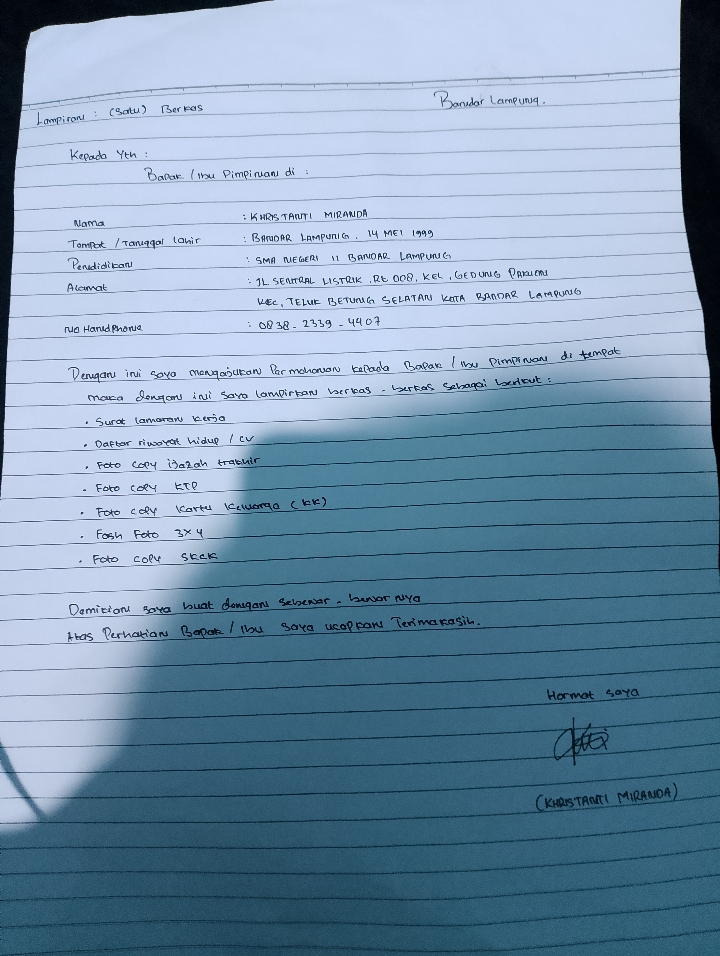 Lampiran : (Satu) Berkas
Bandar Lampung.
Kepada Yth :
Bapak / Ibu Pimpinan di :
Nama : KHRISTANTI MIRANDA
Tempat / Tanggal Lahir : BANDAR LAMPUNG, 14 MEI 1999
Pendidikan : SMA NEGERI 11 BANDAR LAMPUNG
Alamat : JL SENTRAL LISTRIK, Rt 008, KEL, GEDUNG PAKUON
KEC, TELUK BETUNG SELATAN KOTA BANDAR LAMPUNG
No Handphone : 0838 - 2339 - 4407
Dengan ini saya mengajukan Permohonan kepada Bapak / Ibu Pimpinan di tempat
maka dengan ini saya lampirkan berkas - berkas sebagai berikut :
• Surat lamaran kerja
• Daftar riwayat hidup / CV
• Foto copy ijazah trakhir
• Foto copy KTP
• Foto copy Kartu Keluarga (KK)
• Fash Foto 3x4
• Foto copy SKCK
Demikian saya buat dengan sebenar - benar nya
Atas Perhatian Bapak / Ibu saya ucapkan Terimakasih.
Hormat saya
(KHRISTANTI MIRANDA)